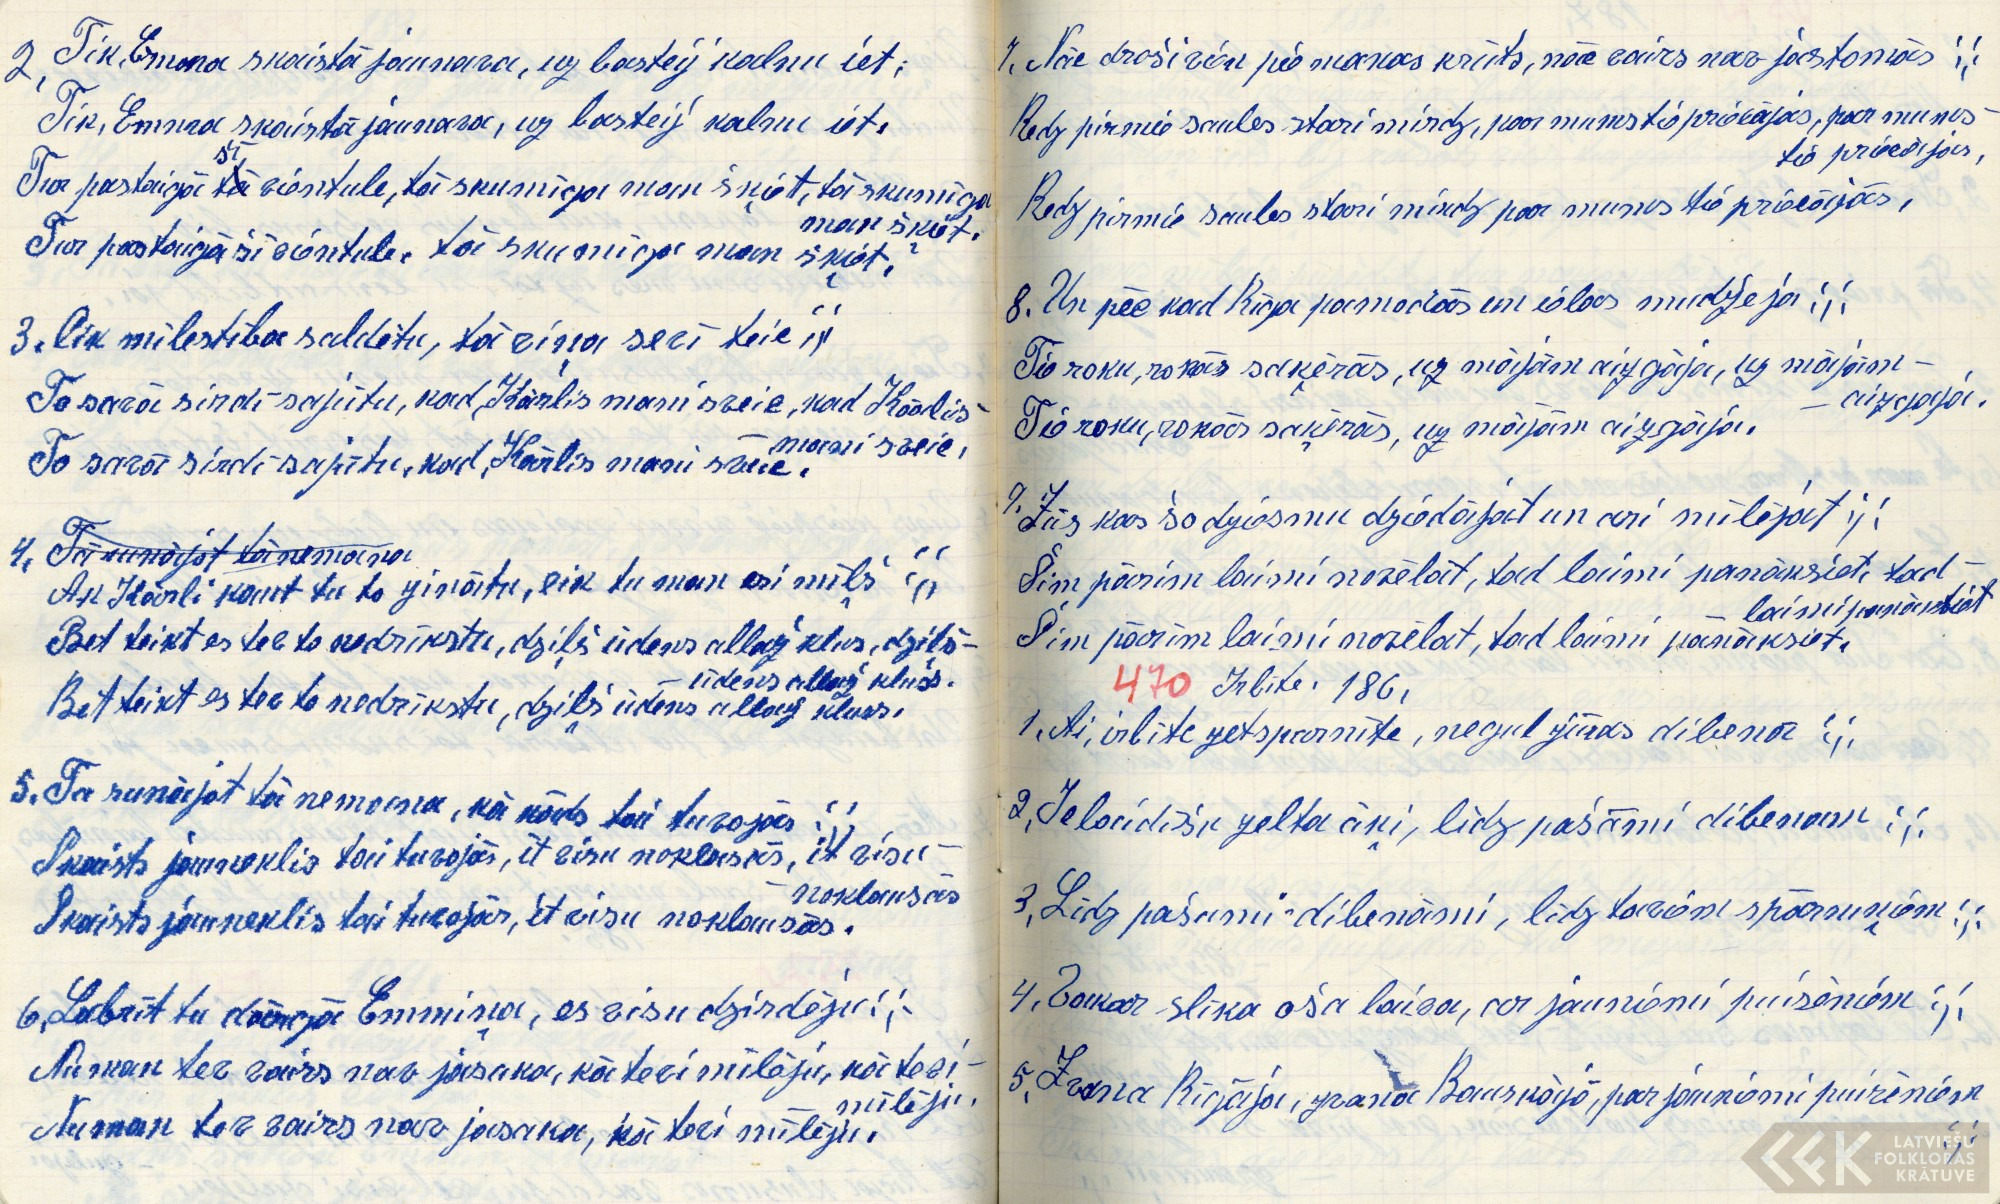 2, Tik, Emma skaistā jaunava, uz basteij kalnu iet,
Tik, Emma skaistā jaunava, uz basteij kalnu iet.
Tur pastaigā šī vientule, tā skumīga man šķiet, tā skumīga
man šķiet.
Tur pastaigā šī vientule, tā skumīga man šķiet.
3. Cik mīlestība saldētu, tā viņa sevī teic ;,;
To savā sirdī sajūtu, kad, Kārlis mani sveic, kad Kārlis
mani sveic,
To savā sirdī sajūtu, kad, Kārlis mani sveic.
4. Tā runājot tā nemana
Ak Kārli kaut tu to zinātu, cik tu man esi mīļš ;,;
Bet teikt es tev to nedrīkstu, dziļš ūdens allaž kluss, dziļš-
- ūdens allaž kluss.
Bet teikt es tev to nedrīkstu, dziļš ūdens allaž kluss.
5. Tā runājot tā nemana, kā kāds tai tuvojās ;,;
Skaists jauneklis tai tuvojās, it visu noklausās, it visu-
- noklausās
Skaists jauneklis tai tuvojās, it visu noklausās.
6, Labrīt tu dārgā Emmiņa, es visu dzirdēju ;,;
Nu man tev vairs nav jāsaka, kā tevi mīlēju, kā tevi-
mīlēju,
Nu man tev vairs nav jasaka, kā tevi mīlēju.
7. Nāc droši vien pie manas krūts, nāc vairs nav jāstomās ;,;
Redz pirmie saules stari mirdz, par mums tie priecājas, par mums-
tie priecājas,
Redz pirmie saules stari mirdz par mums tie priecājās,
8. Un pēc kad Rīga pamodās un ielas mudžeja ;,;
Tie roku, rokās saķērās, uz mājām aizgāja, uz mājām-
- aizgaja.
Tie roku, rokās saķērās, uz mājām aizgāja.
9. Jūs kas šo dziesmu dziedājāt un arī mīlējāt ;,;
Šim pārim laimi novēlāt, tad laimi panāksiet, tad-
laimi panāksiet
Šim pārim laimi novēlat, tad laimi pānāksiet.
470 Irbīte. 186,
1. Ai, irbīte zetsparnīte, negul jūras dibenā ;,;
2, Ielaidīšu zelta āķi, līdz pašāmi dibenam ;,;
3, Līdz pašami dibenāmi, līdz taviem spārniņiem ;,;
4. Vakar slīka oša laiva, ar jauniemi puišēniem ;,;
5, Zvana Rīgāja, zvana Bauskājā, par jauniemi puišēniem
;,;
LATVIEŠU
FOLKLORAS
KRĀTUVE